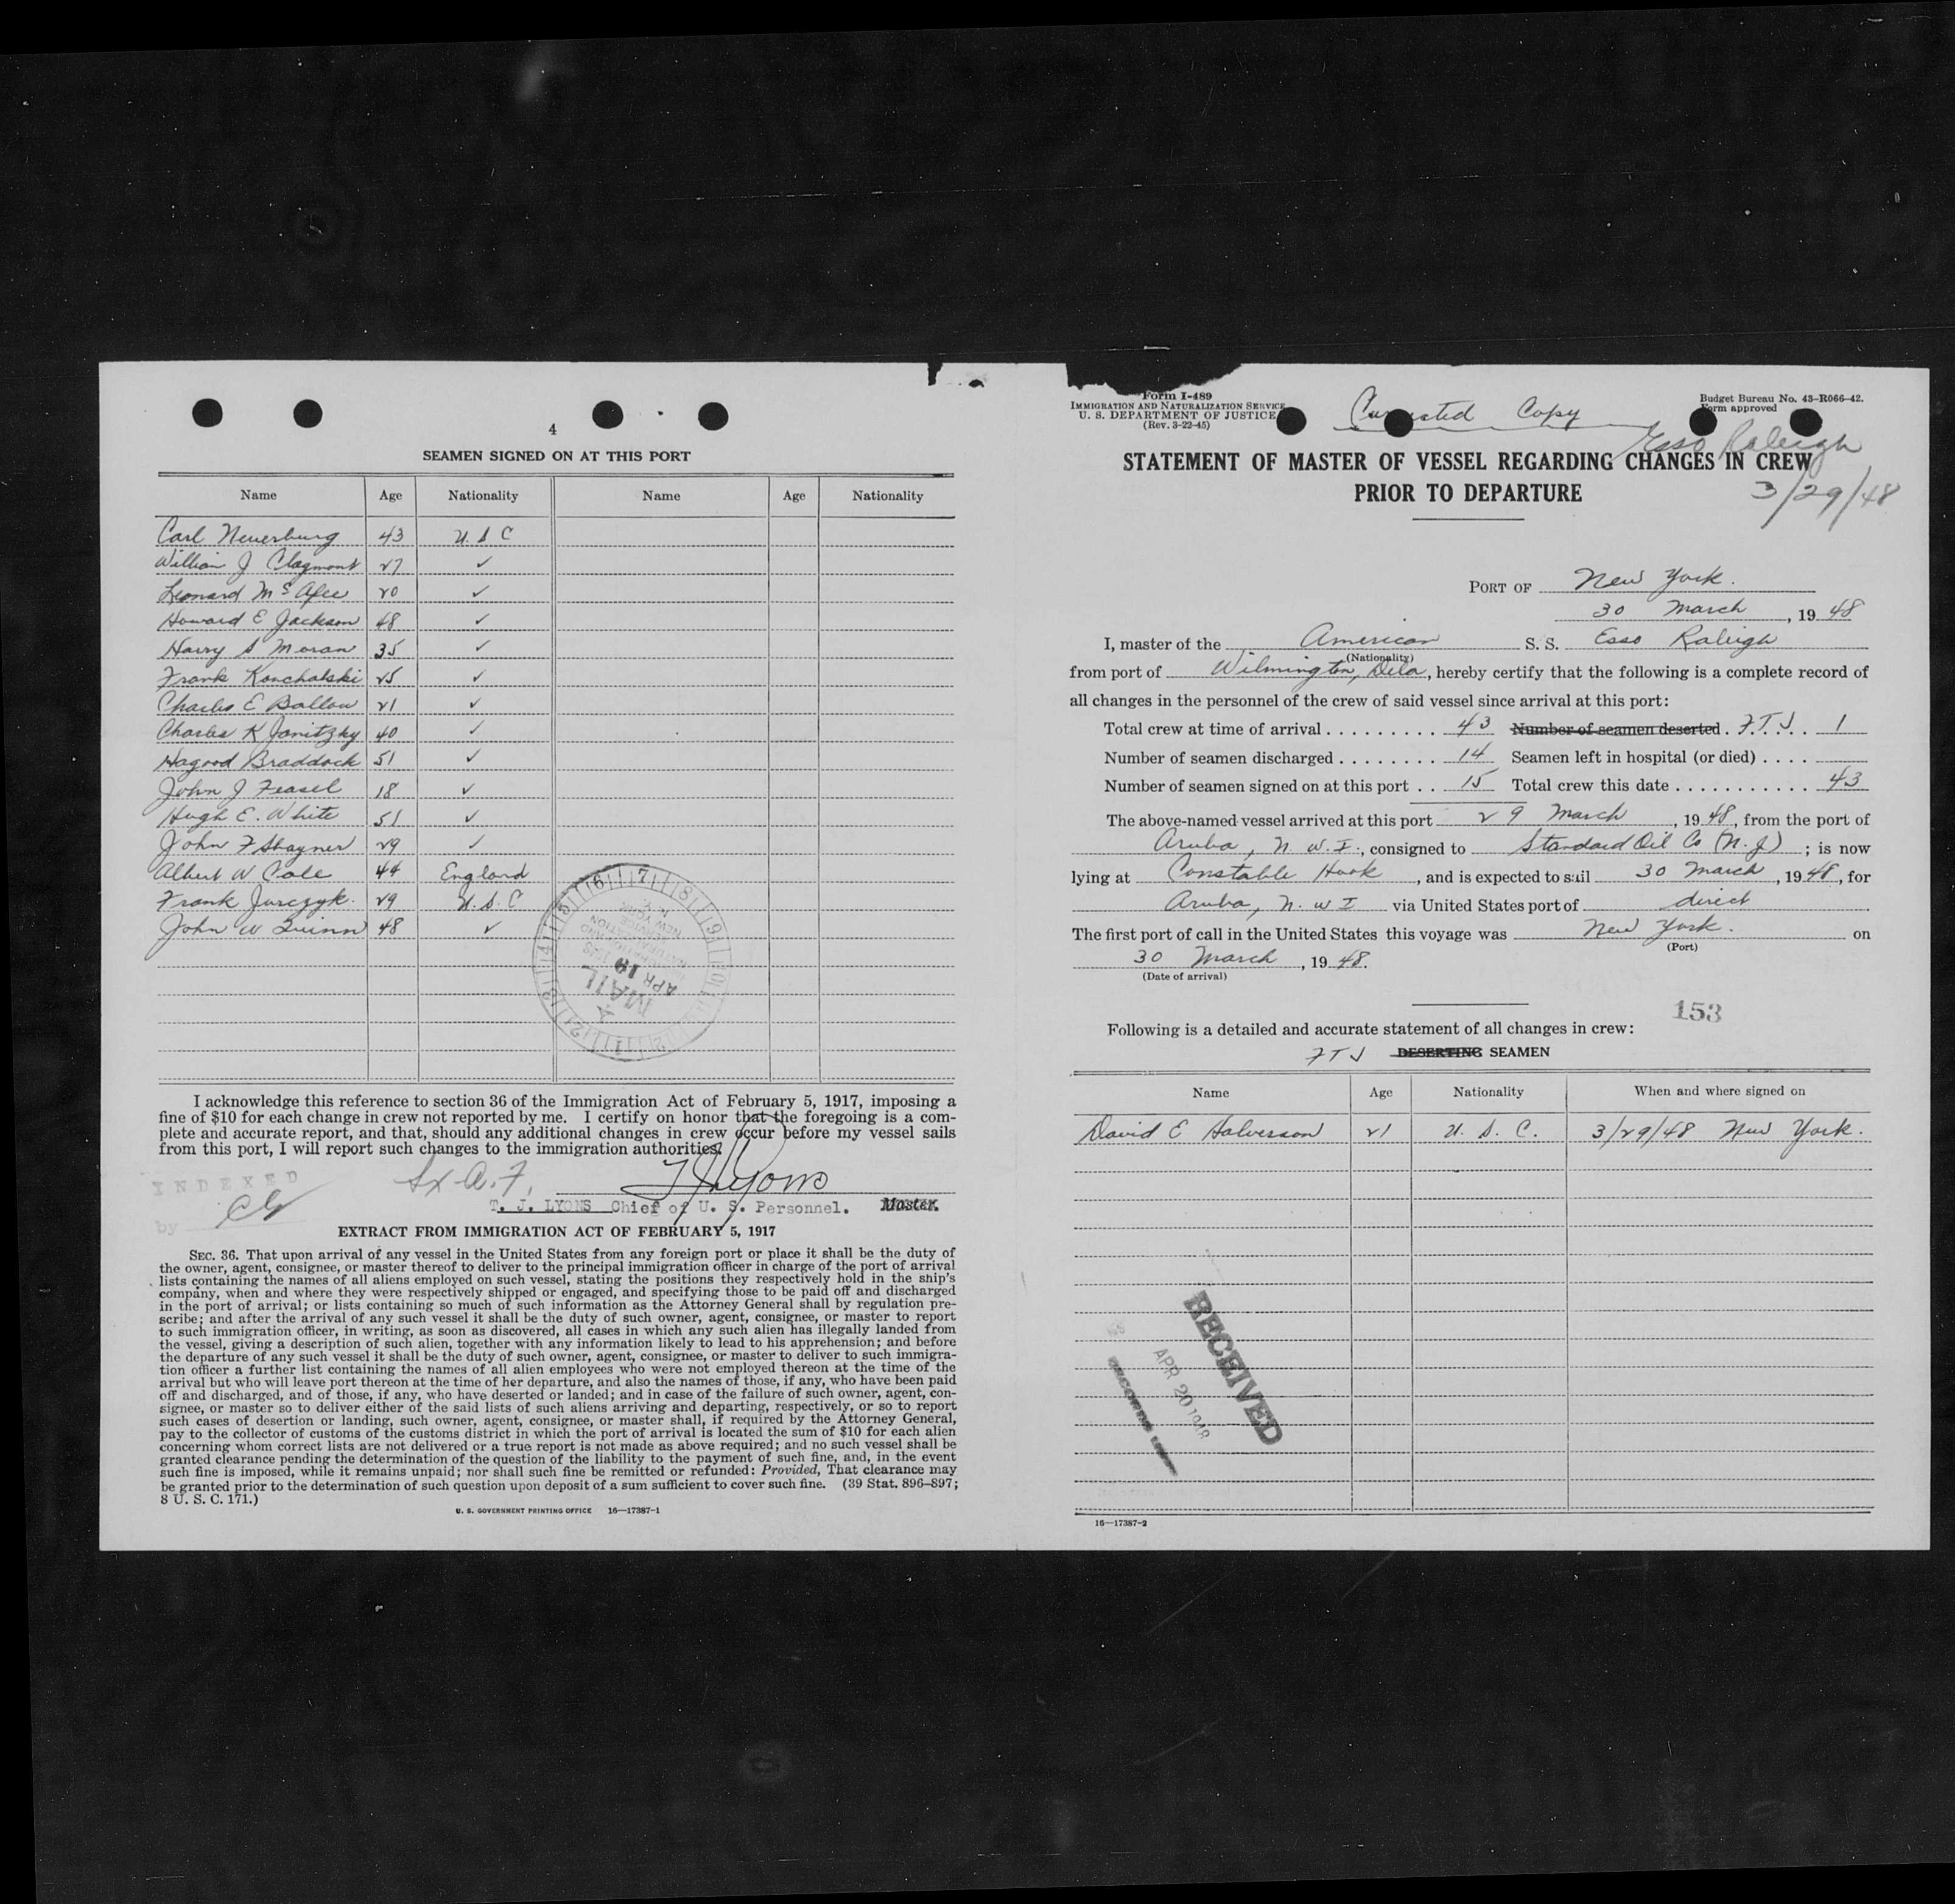 4
SEAMEN SIGNED ON AT THIS PORT
Name Age Nationality Name Age Nationality
Carl Neuerburg 43 U. S. C
William J Clagmont 27 ✓
Leonard McAfee 20 ✓
Howard E Jackson 48 ✓
Harry S Moran 35 ✓
Frank Konchalski 25 ✓
Charles E Ballow 21 ✓
Charles K Janitzky 40 ✓
Hagood Braddock 51 ✓
John J Feasel 18 ✓
Hugh E. White 51 ✓
John F Shayner 29 ✓
Albert W Cole 44 England
Frank Jurczyk. 29 U. S. C
John W Quinn 48 ✓
MAIL
APR 19
I acknowledge this reference to section 36 of the Immigration Act of February 5, 1917, imposing a
fine of $10 for each change in crew not reported by me. I certify on honor that the foregoing is a com-
plete and accurate report, and that, should any additional changes in crew occur before my vessel sails
from this port, I will report such changes to the immigration authorities.
INDEXED
by
T. J. LYONS Chief of U. S. Personnel. Master.
EXTRACT FROM IMMIGRATION ACT OF FEBRUARY 5, 1917
SEC. 36. That upon arrival of any vessel in the United States from any foreign port or place it shall be the duty of
the owner, agent, consignee, or master thereof to deliver to the principal immigration officer in charge of the port of arrival
lists containing the names of all aliens employed on such vessel, stating the positions they respectively hold in the ship's
company, when and where they were respectively shipped or engaged, and specifying those to be paid off and discharged
in the port of arrival; or lists containing so much of such information as the Attorney General shall by regulation pre-
scribe; and after the arrival of any such vessel it shall be the duty of such owner, agent, consignee, or master to report
to such immigration officer, in writing, as soon as discovered, all cases in which any such alien has illegally landed from
the vessel, giving a description of such alien, together with any information likely to lead to his apprehension; and before
the departure of any such vessel it shall be the duty of such owner, agent, consignee, or master to deliver to such immigra-
tion officer a further list containing the names of all alien employees who were not employed thereon at the time of the
arrival but who will leave port thereon at the time of her departure, and also the names of those, if any, who have been paid
off and discharged, and of those, if any, who have deserted or landed; and in case of the failure of such owner, agent, con-
signee, or master so to deliver either of the said lists of such aliens arriving and departing, respectively, or so to report
such cases of desertion or landing, such owner, agent, consignee, or master shall, if required by the Attorney General,
pay to the collector of customs of the customs district in which the port of arrival is located the sum of $10 for each alien
concerning whom correct lists are not delivered or a true report is not made as above required; and no such vessel shall be
granted clearance pending the determination of the question of the liability to the payment of such fine, and, in the event
such fine is imposed, while it remains unpaid; nor shall such fine be remitted or refunded: Provided, That clearance may
be granted prior to the determination of such question upon deposit of a sum sufficient to cover such fine. (39 Stat. 896–897;
8 U. S. C. 171.)
U. S. GOVERNMENT PRINTING OFFICE 16—17387-1
Form I-489
IMMIGRATION AND NATURALIZATION SERVICE
U. S. DEPARTMENT OF JUSTICE
(Rev. 3-22-45)
Corrected Copy
Budget Bureau No. 43-R066-42.
Form approved
Esso Raleigh
3/29/48
STATEMENT OF MASTER OF VESSEL REGARDING CHANGES IN CREW
PRIOR TO DEPARTURE
PORT OF New York.
30 March, 19 48
I, master of the American S. S. Esso Raleigh
(Nationality)
from port of Wilmington, Dela, hereby certify that the following is a complete record of
all changes in the personnel of the crew of said vessel since arrival at this port:
Total crew at time of arrival 43 Number of seamen deserted. FTJ 1
Number of seamen discharged 14 Seamen left in hospital (or died)
Number of seamen signed on at this port 15 Total crew this date 43
The above-named vessel arrived at this port 29 March, 19 48, from the port of
Aruba, N. W. I., consigned to Standard Oil Co (N. J); is now
lying at Constable Hook, and is expected to sail 30 March, 19 48, for
Aruba, N. W I via United States port of direct
The first port of call in the United States this voyage was New York. on
(Port)
30 March, 19 48.
(Date of arrival)
153
Following is a detailed and accurate statement of all changes in crew:
FTJ DESERTING SEAMEN
Name Age Nationality When and where signed on
David E Halverson 21 U. S. C. 3/29/48 New York.
RECEIVED
APR 20 1948
16—17387-2